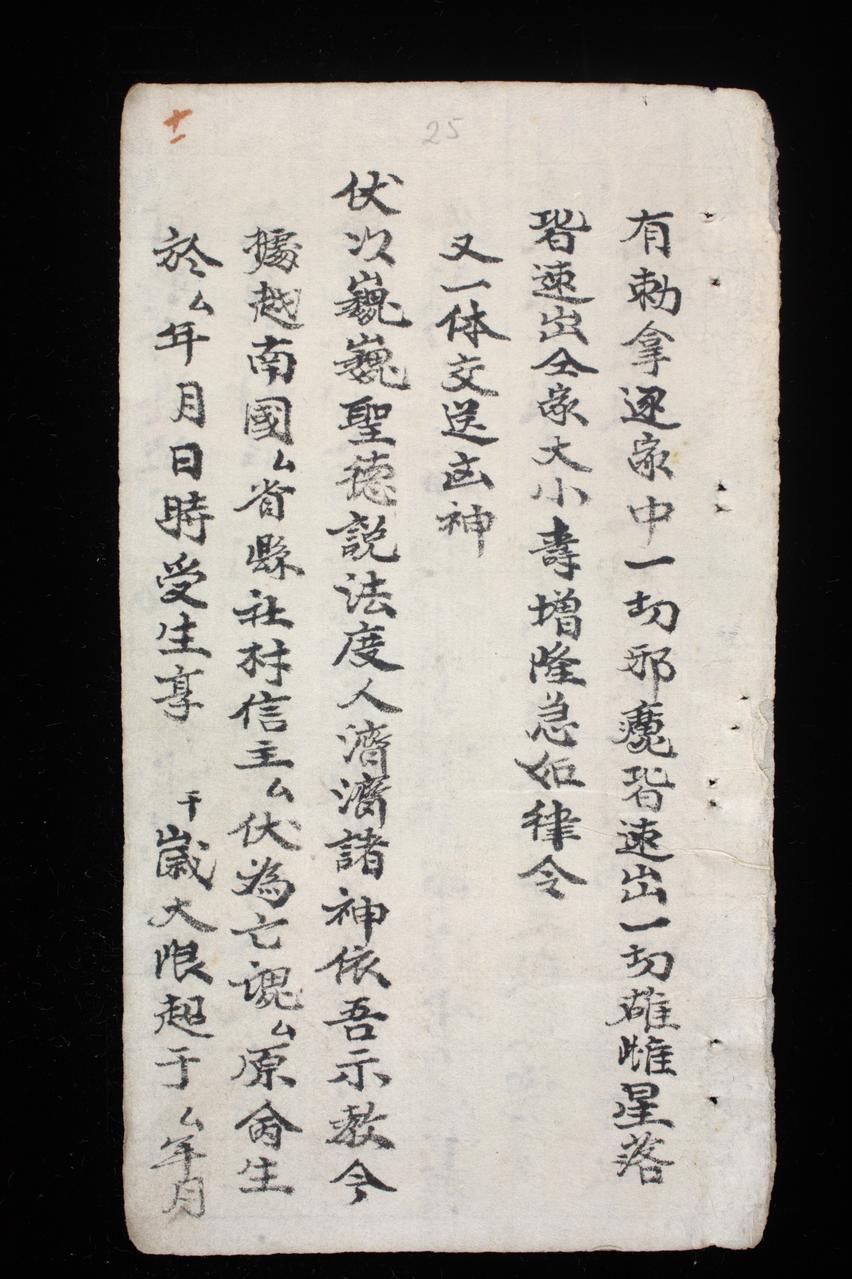 十一
25
有勅拿逐家中一切邪魔皆速出一切雄雌星落
皆速出仝家大小壽增隆急如律令
又一体交送凶神
伏以巍巍聖德説法度人濟濟諸神依吾示教今
據越南國厶省縣社村信主厶伏為亡魂厶原命生
於厶年月日時受生享 干歲大限起于厶年月